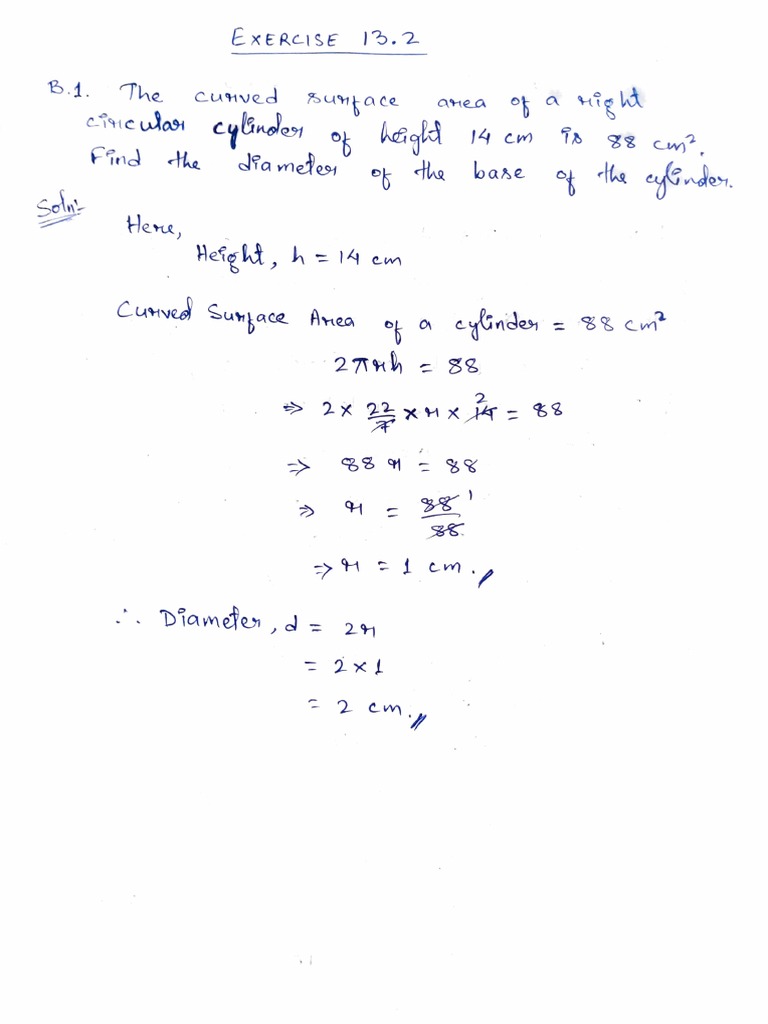 EXERCISE 13.2
B.1. The curved surface area of a right
circular cylinder of height 14 cm is 88 cm².
Find the diameter of the base of the cylinder.
Soln:-
Here,
Height, h = 14 cm
Curved Surface Area of a cylinder = 88 cm²
2πrh = 88
⇒ 2 × 22/7 × r × 14 2 = 88
⇒ 88 r = 88
⇒ r = 88/88 1
⇒ r = 1 cm.
∴ Diameter, d = 2r
= 2 × 1
= 2 cm.